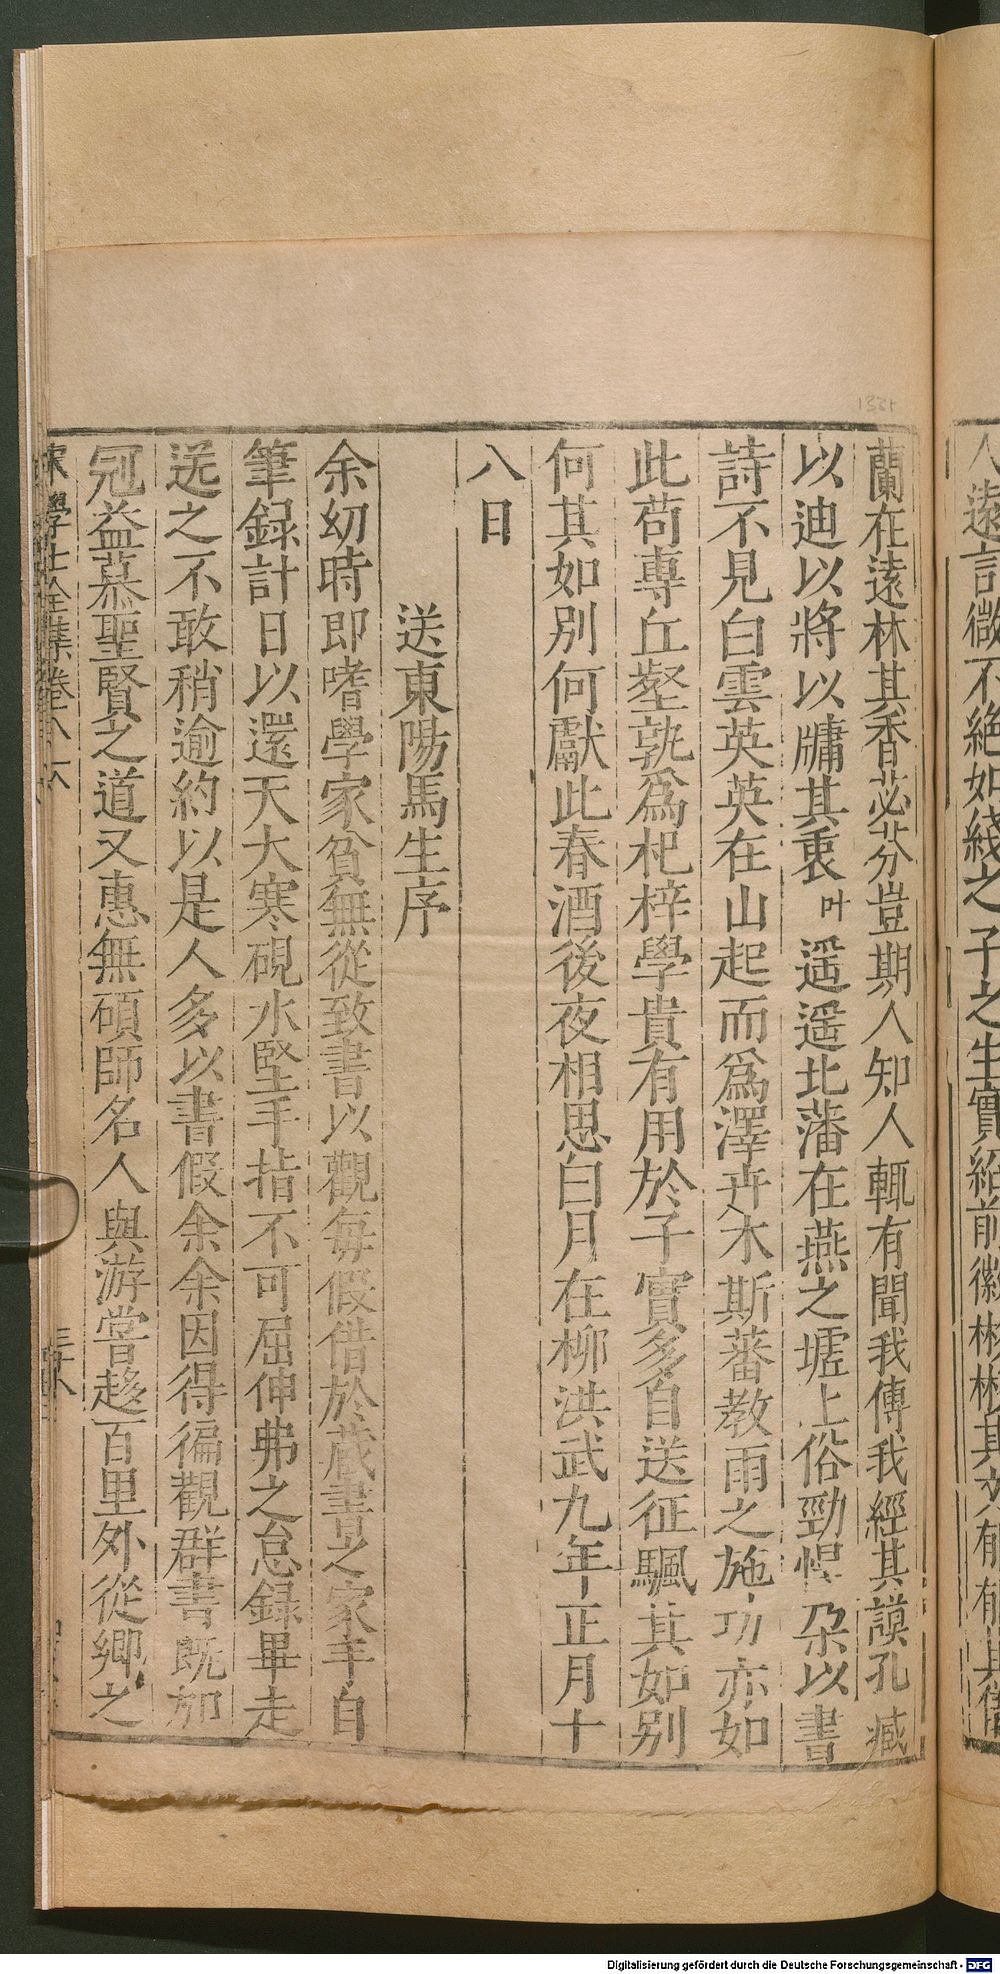 人遠言微不絶如綫之子之生實紹前徽彬彬其文郁郁其儀
1331
蘭在遠林其香苾芬豈期人知人輒有聞我傅我經其謨孔臧
以迪以將以牖其衷叶遥遥北藩在燕之墟上俗勁悍朶以書
詩不見白雲英英在山起而爲澤卉木斯蕃教雨之施功亦如
此苟專丘壑孰爲杞梓學貴有用於子實多自送征颿其如别
何其如别何獻此春酒後夜相思白月在柳洪武九年正月十
八日
送東陽馬生序
余幼時即嗜學家貧無從致書以觀每假借於藏書之家手自
筆録計日以還天大寒硯氷堅手指不可屈伸弗之怠録畢走
送之不敢稍逾約以是人多以書假余余因得徧觀群書既加
冠益慕聖賢之道又患無碩師名人與游嘗趍百里外從鄉之
宋學士全集卷八
Digitalisierung gefördert durch die Deutsche Forschungsgemeinschaft - DFG